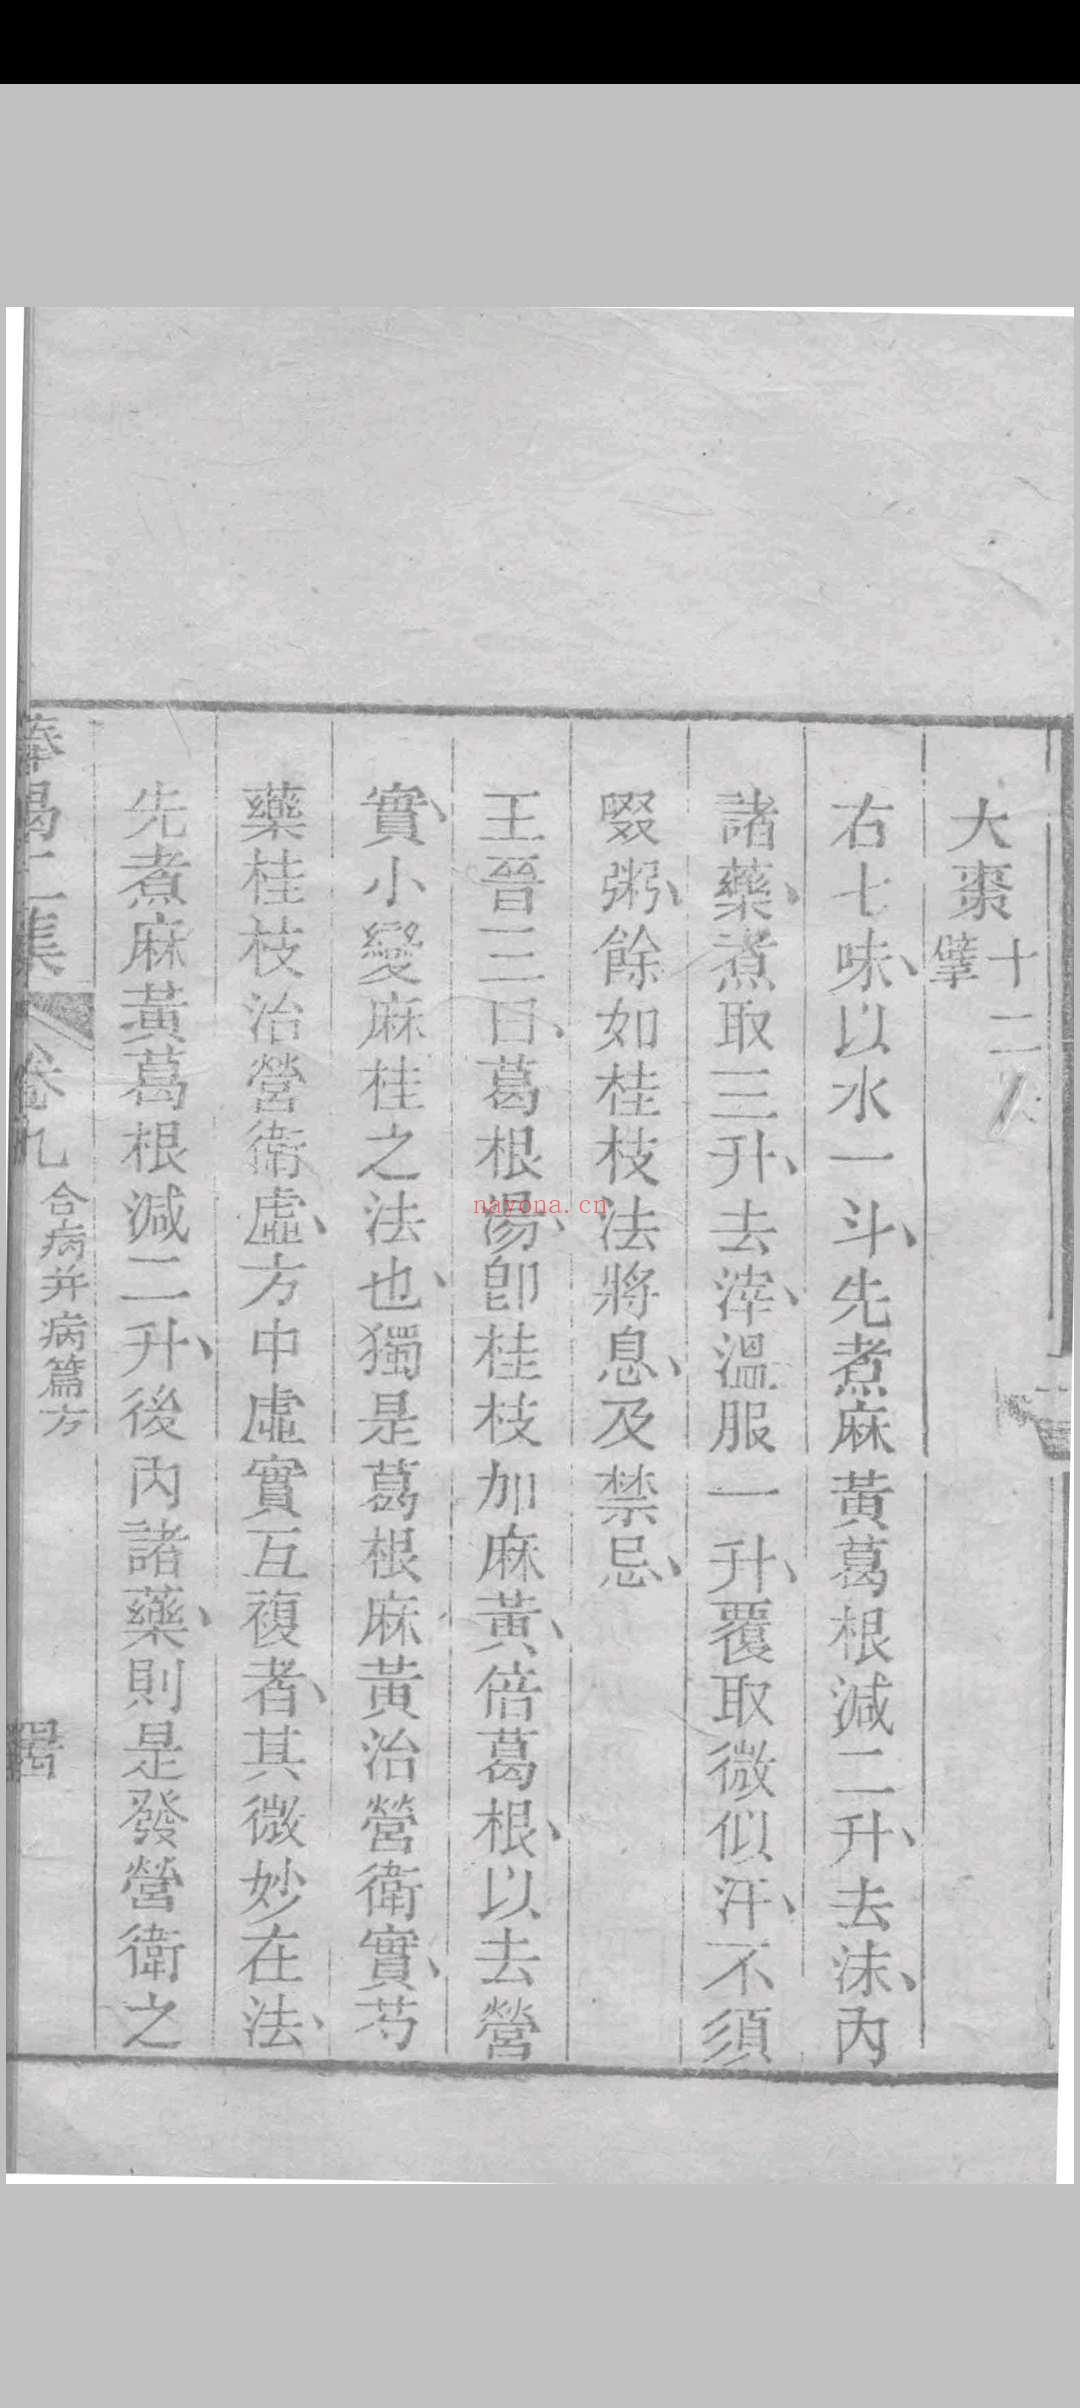 大棗十二枚擘
右七味以水一斗先煮麻黃葛根減二升去沫內
諸藥煮取三升去滓溫服一升覆取微似汗不須
啜粥餘如桂枝法將息及禁忌
王晉三曰葛根湯卽桂枝加麻黃倍葛根以去營
實小變麻桂之法也獨是葛根麻黃治營衛實芍
藥桂枝治營衛虛方中虛實互複者其微妙在法
先煮麻黃葛根減二升後內諸藥則是發營衛之
二集 卷九 合病并病篇方
nayona.cn